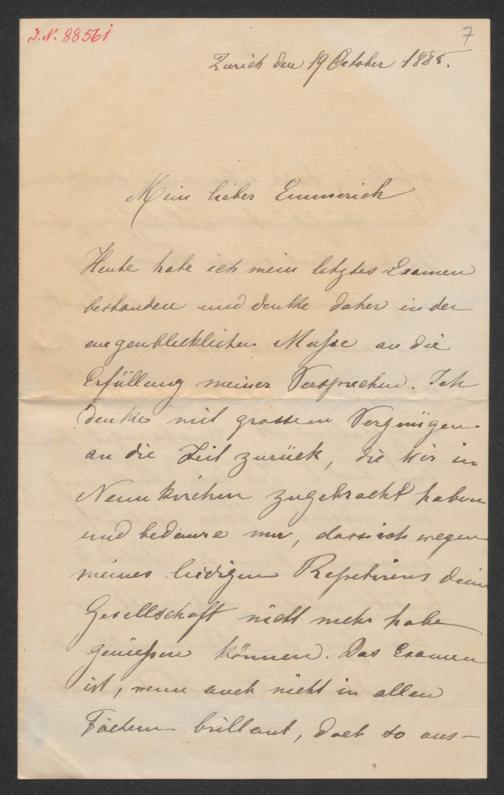 J.N. 88561
7
Zurich den 19 October 1885.
Mein lieber Emmerich
Heute habe ich mein letztes Examen
bestanden und denke daher in der
augenblicklichen Musse an die
Erfüllung meiner Versprechen. Ich
denke mit grossem Vergnügen
an die Zeit zurück, die wir in
Neunkirchen zugebracht haben
und bedaure nur, dass ich wegen
meines leidigen Repetirens deine
Gesellschaft nicht mehr habe
geniessen können. Das Examen
ist, wenn auch nicht in allen
Fächern brillant, doch so aus-